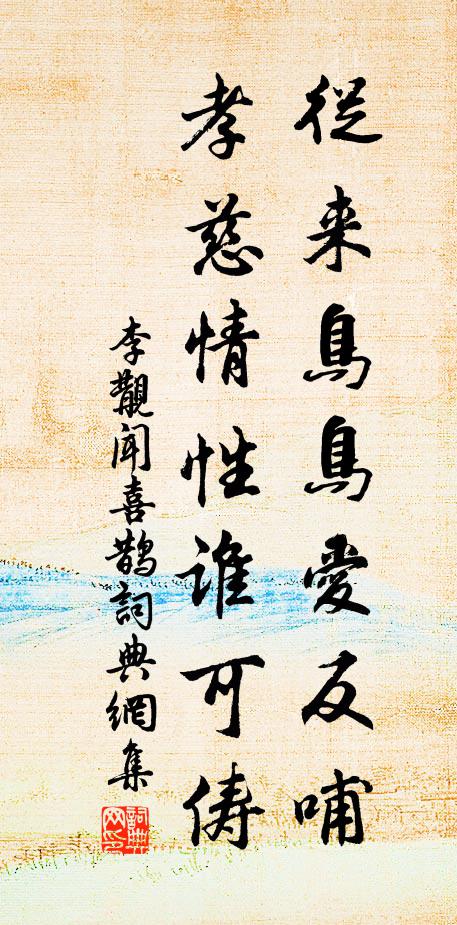 從来烏鳥愛反哺
孝慈情性誰可儔
李覯聞喜鵲詞典網集
詞典网印